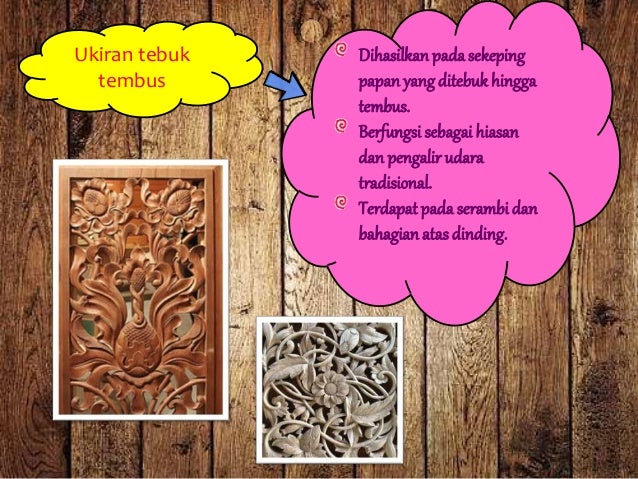 Ukiran tebuk
tembus
Dihasilkan pada sekeping
papan yang ditebuk hingga
tembus.
Berfungsi sebagai hiasan
dan pengalir udara
tradisional.
Terdapat pada serambi dan
bahagian atas dinding.